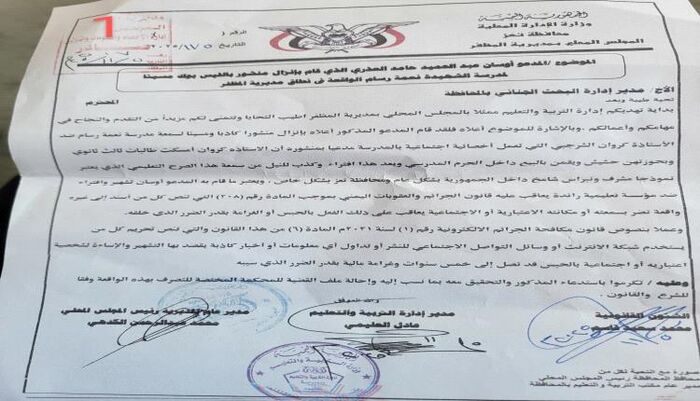 الجمهورية اليمنية
وزارة الإدارة المحلية
محافظة تعز
المجلس المحلي بمديرية المظفر
الرقم /
التاريخ
الموضوع / المدعو أوسان عبد الحميد حامد العذري الذي قام بإنزال منشور بالفيس بوك مسيئا
لمدرسة الشهيدة نعمة رسام الواقعة في نطاق مديرية المظفر
الأخ / مدير إدارة البحث الجنائي بالمحافظة المحترم
تحية طيبة وبعد
بداية تهديكم إدارة التربية والتعليم ممثلا بالمجلس المحلي بمديرية المظفر أطيب التحايا وتتمنى لكم مزيداً من التقدم والنجاح في
مهامكم وأعمالكم . وبالإشارة للموضوع أعلاه فلقد قام المدعو المذكور أعلاه بإنزال منشورا كاذبا ومسيئا لسمعة مدرسة نعمة رسام ضد
الأستاذة كروان الشرجبي التي تعمل أخصائية اجتماعية بالمدرسة مدعيا بمنشوره أن الأستاذة كروان أمسكت طالبات ثالث ثانوي
وبحوزتهن حشيش ويقمن بالبيع داخل الحرم المدرسي ويعد هذا افتراء وكذب للنيل من سمعة هذا الصرح التعليمي الذي يعتبر
نموذجا مشرف ونبراس شامخ داخل الجمهورية بشكل عام ومحافظة تعز بشكل خاص ، ويعتبر ما قام به المدعو أوسان تشهير وافتراء
ضد مؤسسة تعليمية رائدة يعاقب عليه قانون الجرائم والعقوبات اليمني بموجب المادة رقم (٢٠٨) التي تنص كل من أسند إلى غيره
واقعة تضر بسمعته أو مكانته الاعتبارية أو الاجتماعية يعاقب على ذلك الفعل بالحبس أو الغرامة بقدر الضرر الذي خلفه .
وعملا بنصوص قانون مكافحة الجرائم الالكترونية رقم (١) لسنة ٢٠٢١م المادة (٦) من هذا القانون والتي تنص تحريم كل من
يستخدم شبكة الانترنت أو وسائل التواصل الاجتماعي للنشر أو تداول أي معلومات أو أخبار كاذبة يقصد بها التشهير والإساءة لشخصية
اعتبارية أو اجتماعية بالحبس قد تصل إلى خمس سنوات وغرامة مالية بقدر الضرر الذي سببه
وعليه / تكرموا باستدعاء المذكور والتحقيق معه بما نسب إليه وإحالة ملف القضية للمحكمة المختصة للتصرف بهذه الواقعة وفقا
للشرع والقانون .
الشئون القانونية
محمد سعيد قاسم
مدير إدارة التربية والتعليم
عادل العليمي
مدير عام المديرية رئيس المجلس المحلي
محمد عبدالرحمن الكدهي
صورة مع التحية لكل من
محافظ المحافظة رئيس المجلس المحلي
مدير عام مكتب التربية والتعليم بالمحافظة